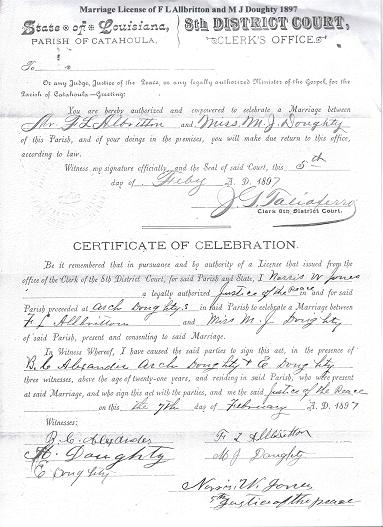 Marriage License of F L Albritton and M J Doughty 1897
State of Louisiana,
PARISH OF CATAHOULA.
8th DISTRICT COURT,
CLERK'S OFFICE.
To
Or any Judge, Justice of the Peace, or any legally authorized Minister of the Gospel, for the
Parish of Catahoula—Greeting:
You are hereby authorized and empowered to celebrate a Marriage between
Mr. F L Albritton and Miss M. J Doughty
of this Parish, and of your doings in the premises, you will make due return to this office,
according to law.
Witness my signature officially, and the Seal of said Court, this 5th
day of Feby A. D. 1897
J. S. Taliaferro
Clerk 8th District Court.
CERTIFICATE OF CELEBRATION.
Be it remembered that in pursuance and by authority of a License that issued from the
office of the Clerk of the 8th District Court, for said Parish and State, I Norris W Jones
a legally authorized Justice of the Peace in and for said
Parish proceeded at Arch Doughty,s in said Parish to celebrate a Marriage between
F L Allbritton and Miss M. J Doughty
of said Parish, present and consenting to said Marriage.
In Witness Whereof, I have caused the said parties to sign this act, in the presence of
B. C. Alexander Arch Doughty & E. Doughty
three witnesses, above the age of twenty-one years, and residing in said Parish, who were present
at said Marriage, and who sign this act with the parties, and me the said Justice of the Peace
on this the 7th day of February A. D. 1897
Witnesses:
B. C. Alexander
A. Doughty
E Doughty
F L Allbritton
M J Doughty
Norris W. Jones
Justice of the peace